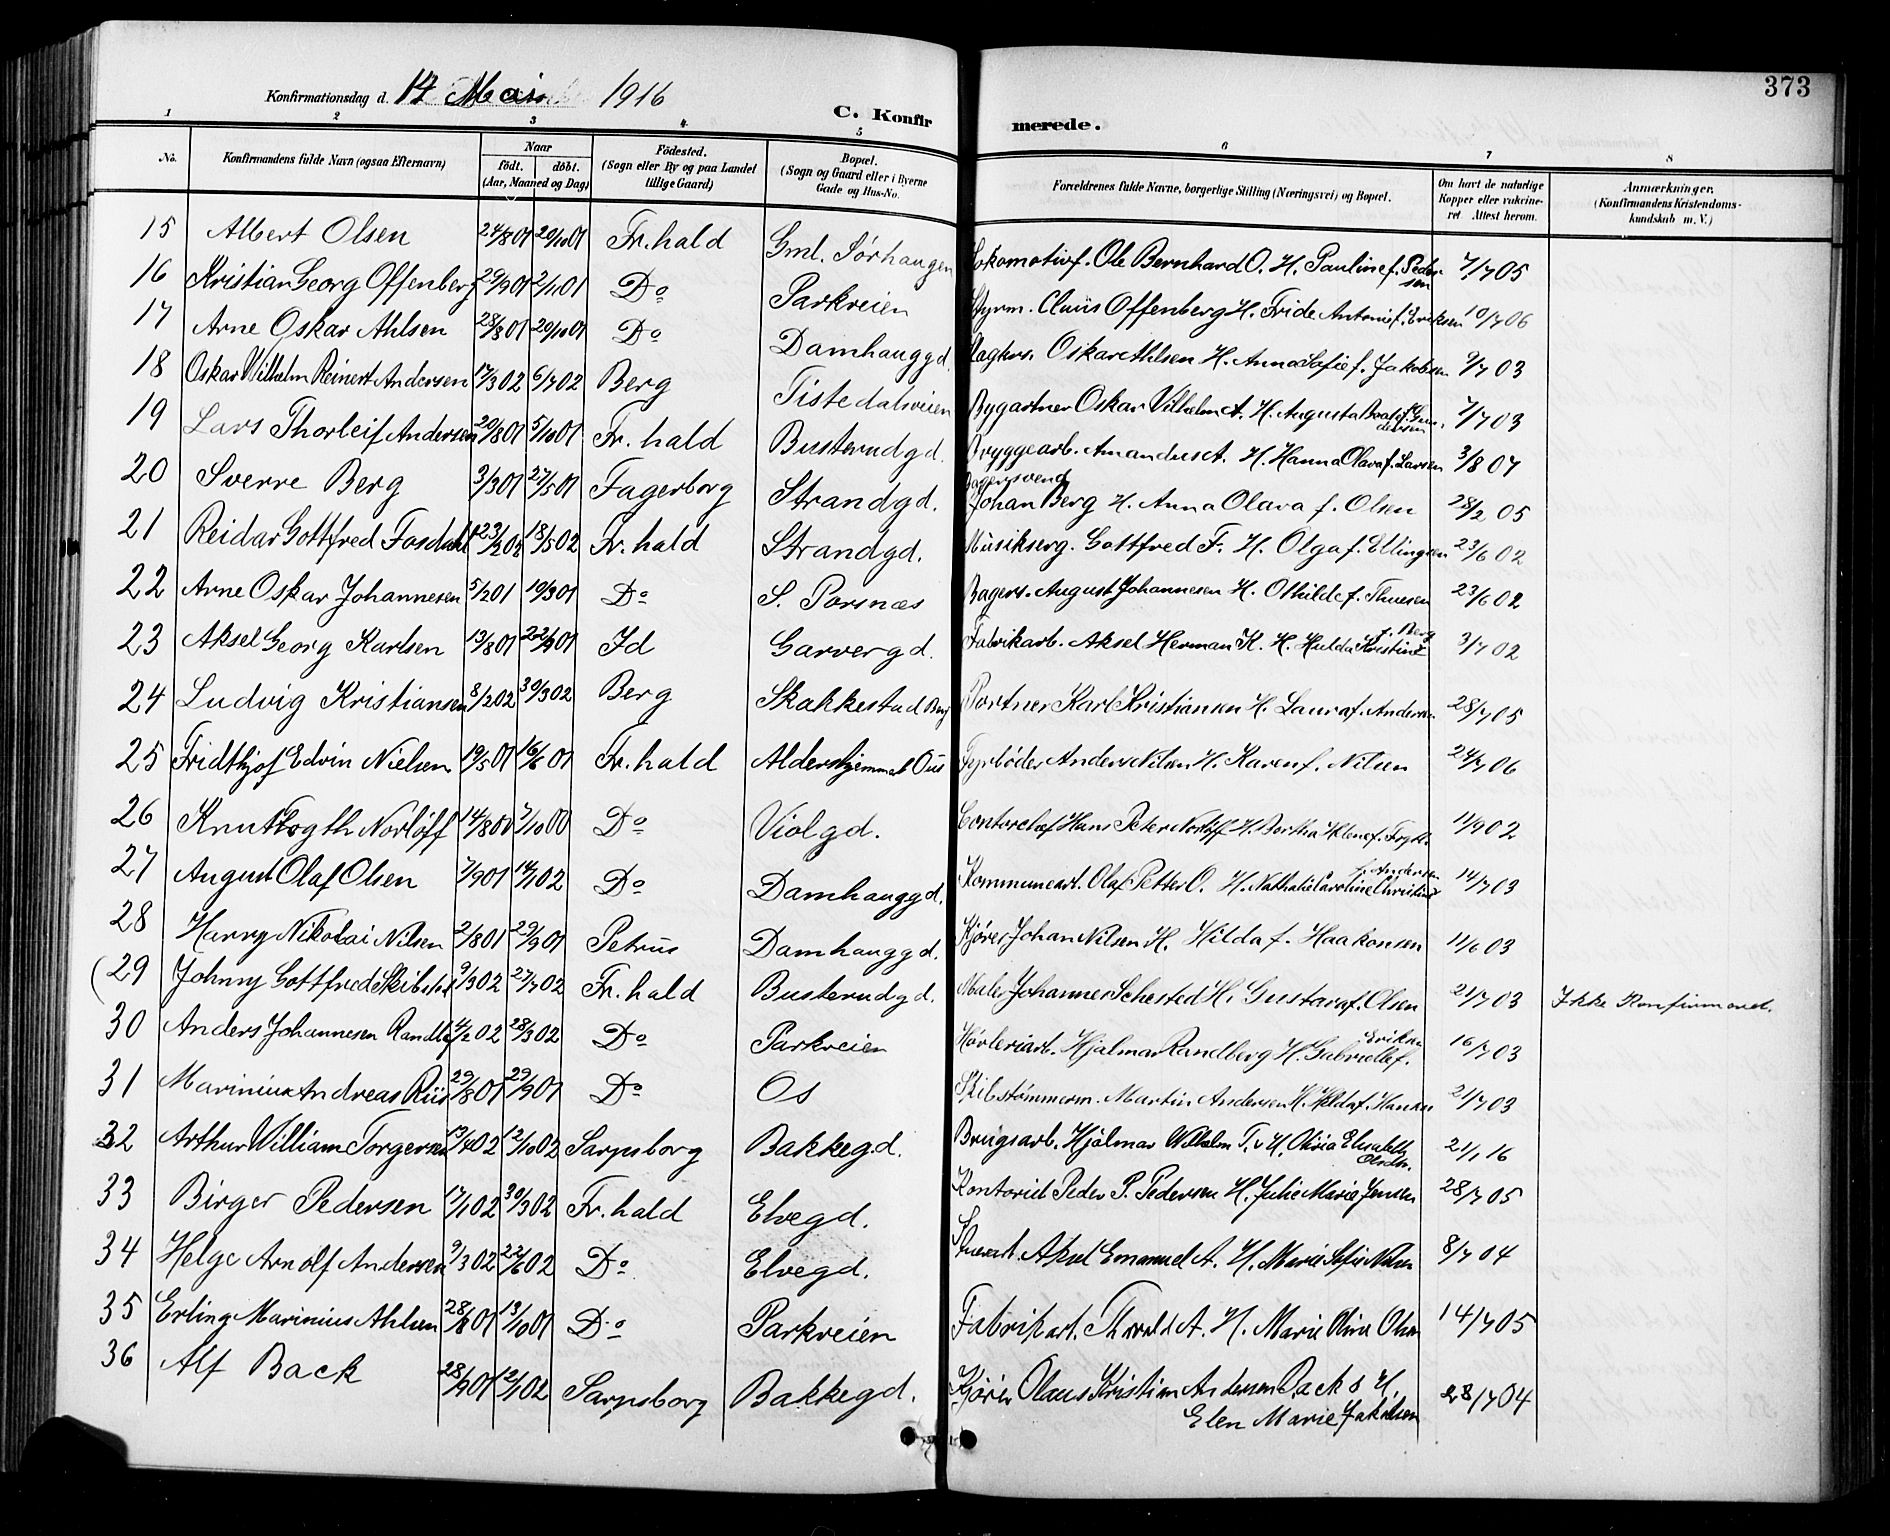 373
Konfirmationsdag d. 14 Mai 1916
C. Konfirmerede.
1 2 3 4 5 6 7 8
No. Konfirmandens fulde Navn (ogsaa Efternavn) Naar født. døbt. (Aar, Maaned og Dag) Fødested. (Sogn eller By og paa Landet tillige Gaard) Bopæl. (Sogn og Gaard eller i Byerne Gade og Hus-No. Forældrenes fulde Navne, borgerlige Stilling (Næringsvei) og Bopæl. Om havt de naturlige Kopper eller vakcineret. Attest herom. Anmærkninger. (Konfirmandens Kristendomskundskab m. V.)
15 Albert Olsen 24/8 01 20/10 01 Fr.hald Gml. Sørhaugen Lokomotivf. Ole Bernhard O. H. Pauline f. Pedersen 7/7 05
16 Kristian Georg Offenberg 29/9 01 2/11 01 Do Parkveien Styrm. Claus Offenberg H. Fride Antonie f. Eriksen 10/7 06
17 Arne Oskar Ahlsen 28/8 01 20/10 01 Do Damhauggd. Oskar Ahlsen H. Anna Sofie f. Jakobsen 9/7 03
18 Oskar Wilhelm Reinert Andersen 17/3 02 6/7 02 Berg Tistedalsveien Bygartner Oskar Vilhelm A. H. Augusta 7/7 03
19 Lars Thorleif Andersen 20/8 01 5/10 01 Fr. hald Busterudgd. Bryggearb. Amandus A. H. Hanna Olava f. Larsen 3/8 07
20 Sverre Berg 3/3 01 27/5 01 Fagerborg Strandgd. Bagersvend Johan Berg H. Anna Olava f. Olsen 28/2 05
21 Reidar Gottfred Fosdahl 23/2 02 18/5 02 Fr. hald Strandgd. Musikserg. Gottfred F. H. Olga f. Ellingsen 23/6 02
22 Arne Oskar Johannesen 5/2 01 10/3 01 Do S. Porsnæs Bagers. August Johannesen H. Othilde f. Thuesen 23/6 02
23 Aksel Georg Karlsen 13/8 01 22/9 01 Id Garvergd. Fabrikarb. Aksel Herman K. H. Hulda Kristine f. Berg 3/7 02
24 Ludvig Kristiansen 8/2 02 30/3 02 Berg Skakkestad Berg Portner Karl Kristiansen H. Laura f. Andersen 28/7 05
25 Fridthjof Edvin Nielsen 19/5 01 16/6 01 Fr. hald Aldershjemmet Ous Fyrbøder Anders Nilsen H. Karen f. Nilsen 24/7 06
26 Knut Frogth Norløff 14/8 00 7/10 00 Do Violgd. Contorchef Hans Peter Norløff H. Bertha Helene f. 11/9 02
27 August Olaf Olsen 7/9 01 14/1 02 Do Damhauggd. Kommunearb. Olaf Petter O. H. Nathalie Caroline Christine f. Andersen 14/7 03
28 Harry Nikolai Nilsen 2/8 01 29/9 01 Petrus Damhauggd. Kjører Johan Nilsen H. Hilda f. Haakonsen 11/6 03
(29 Johny Gottfred 9/3 02 27/7 02 Fr. hald Busterudgd. Maler Johannes Schested H. Gustava f. Olsen 21/7 03 Ikke Konfirmeret.
30 Anders Johannesen Randberg 4/2 02 28/3 02 Do Parkveien Høvleriarb. Hjalmar Randberg H. Gabrielle f. Eriksen 16/7 03
31 Marinius Andreas Riis 29/8 01 29/9 01 Do Os Skibstømmerm. Martin Andersen H. Hilda f. Hansen 21/7 03
32 Arthur William Torgersen 13/4 02 12/10 02 Sarpsborg Bakkegd. Brugsarb. Hjalmar Wilhelm T. v H. Olivia Elisabeth Olsdtr. 21/1 16
33 Birger Pedersen 17/1 02 30/3 02 Fr. hald Elvegd. Kontorist Peder P. Pedersen H. Julie Marie Jensen 28/7 05
34 Helge Arnolf Andersen 9/3 02 22/6 02 Do Elvegd. Aksel Emanuel A. H. Marie Sofie Nilsen 8/7 04
35 Erling Marinius Ahlsen 28/8 01 13/10 01 Do Parkveien Fabrikarb. Thorvald A. H. Marie Oline Olsen 14/7 05
36 Alf Back 28/9 01 12/1 02 Sarpsborg Bakkegd. Kjører Olaus Kristian Andersen Back & H. Elen Marie Jakobsen 28/7 04